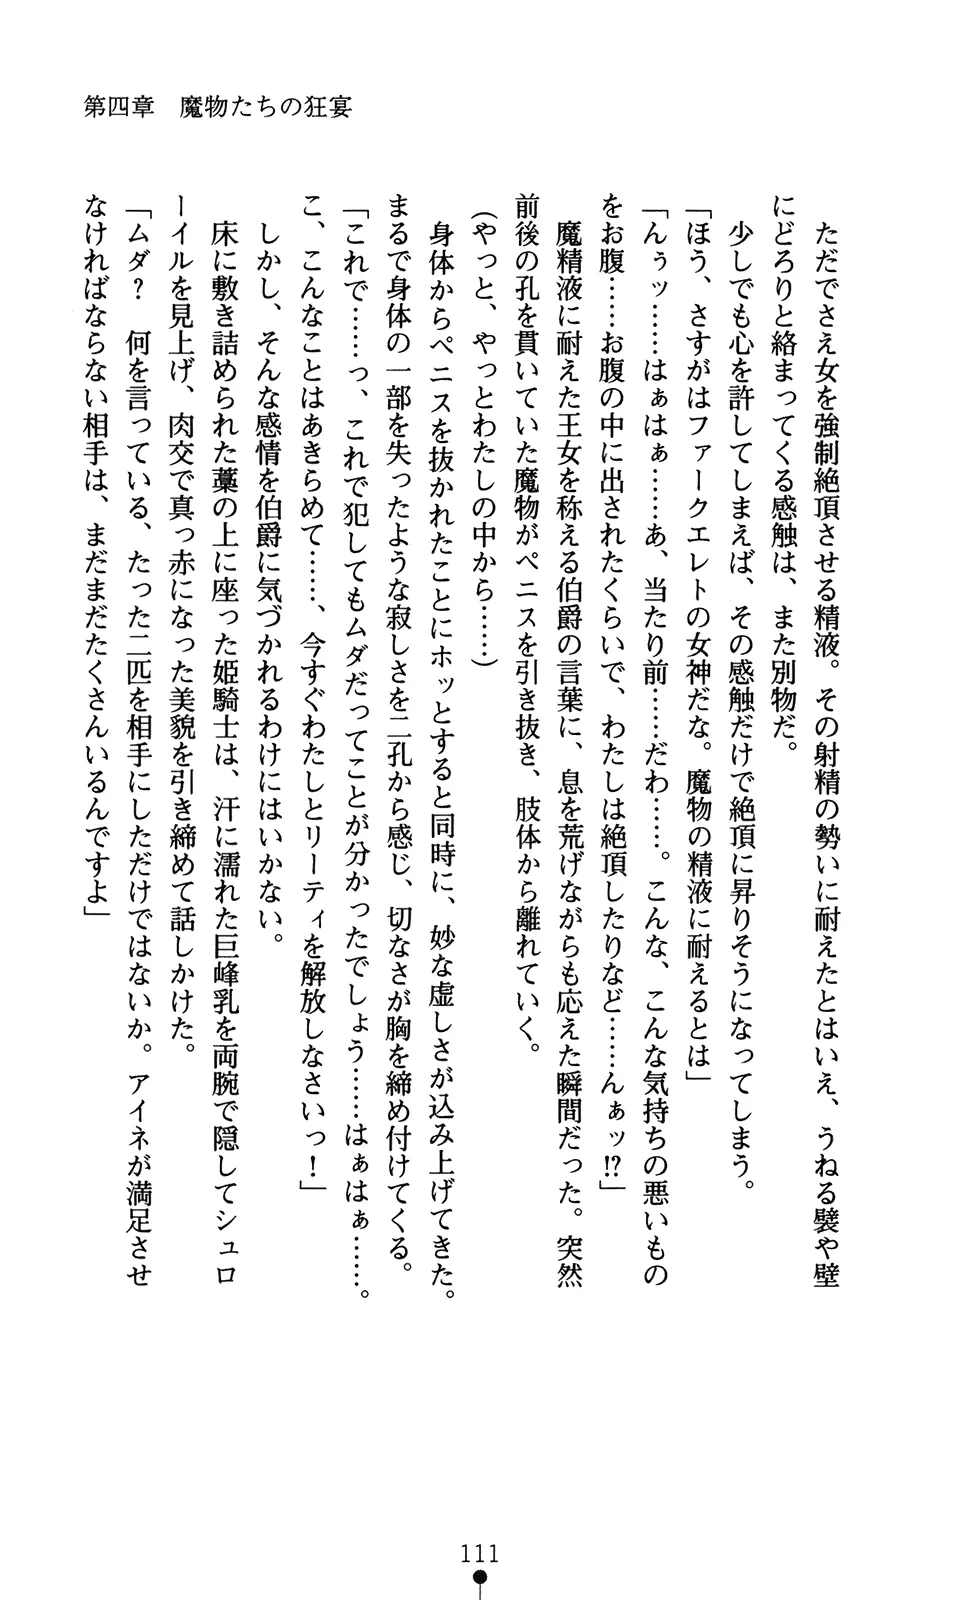 第四章　魔物たちの狂宴
　ただでさえ女を強制絶頂させる精液。その射精の勢いに耐えたとはいえ、うねる襞や壁
にどろりと絡まってくる感触は、また別物だ。
　少しでも心を許してしまえば、その感触だけで絶頂に昇りそうになってしまう。
「ほう、さすがはファークエレトの女神だな。魔物の精液に耐えるとは」
「んぅッ……はぁはぁ……あ、当たり前……だわ……。こんな、こんな気持ちの悪いもの
をお腹……お腹の中に出されたくらいで、わたしは絶頂したりなど……んぁッ!?」
　魔精液に耐えた王女を称える伯爵の言葉に、息を荒げながらも応えた瞬間だった。突然
前後の孔を貫いていた魔物がペニスを引き抜き、肢体から離れていく。
（やっと、やっとわたしの中から……）
　身体からペニスを抜かれたことにホッとすると同時に、妙な虚しさが込み上げてきた。
まるで身体の一部を失ったような寂しさを二孔から感じ、切なさが胸を締め付けてくる。
「これで……っ、これで犯してもムダだってことが分かったでしょう……はぁはぁ……。
こ、こんなことはあきらめて……、今すぐわたしとリーティを解放しなさいっ！」
　しかし、そんな感情を伯爵に気づかれるわけにはいかない。
　床に敷き詰められた藁の上に座った姫騎士は、汗に濡れた巨峰乳を両腕で隠してシュロ
ーイルを見上げ、肉交で真っ赤になった美貌を引き締めて話しかけた。
「ムダ？　何を言っている、たった二匹を相手にしただけではないか。アイネが満足させ
なければならない相手は、まだまだたくさんいるんですよ」
111